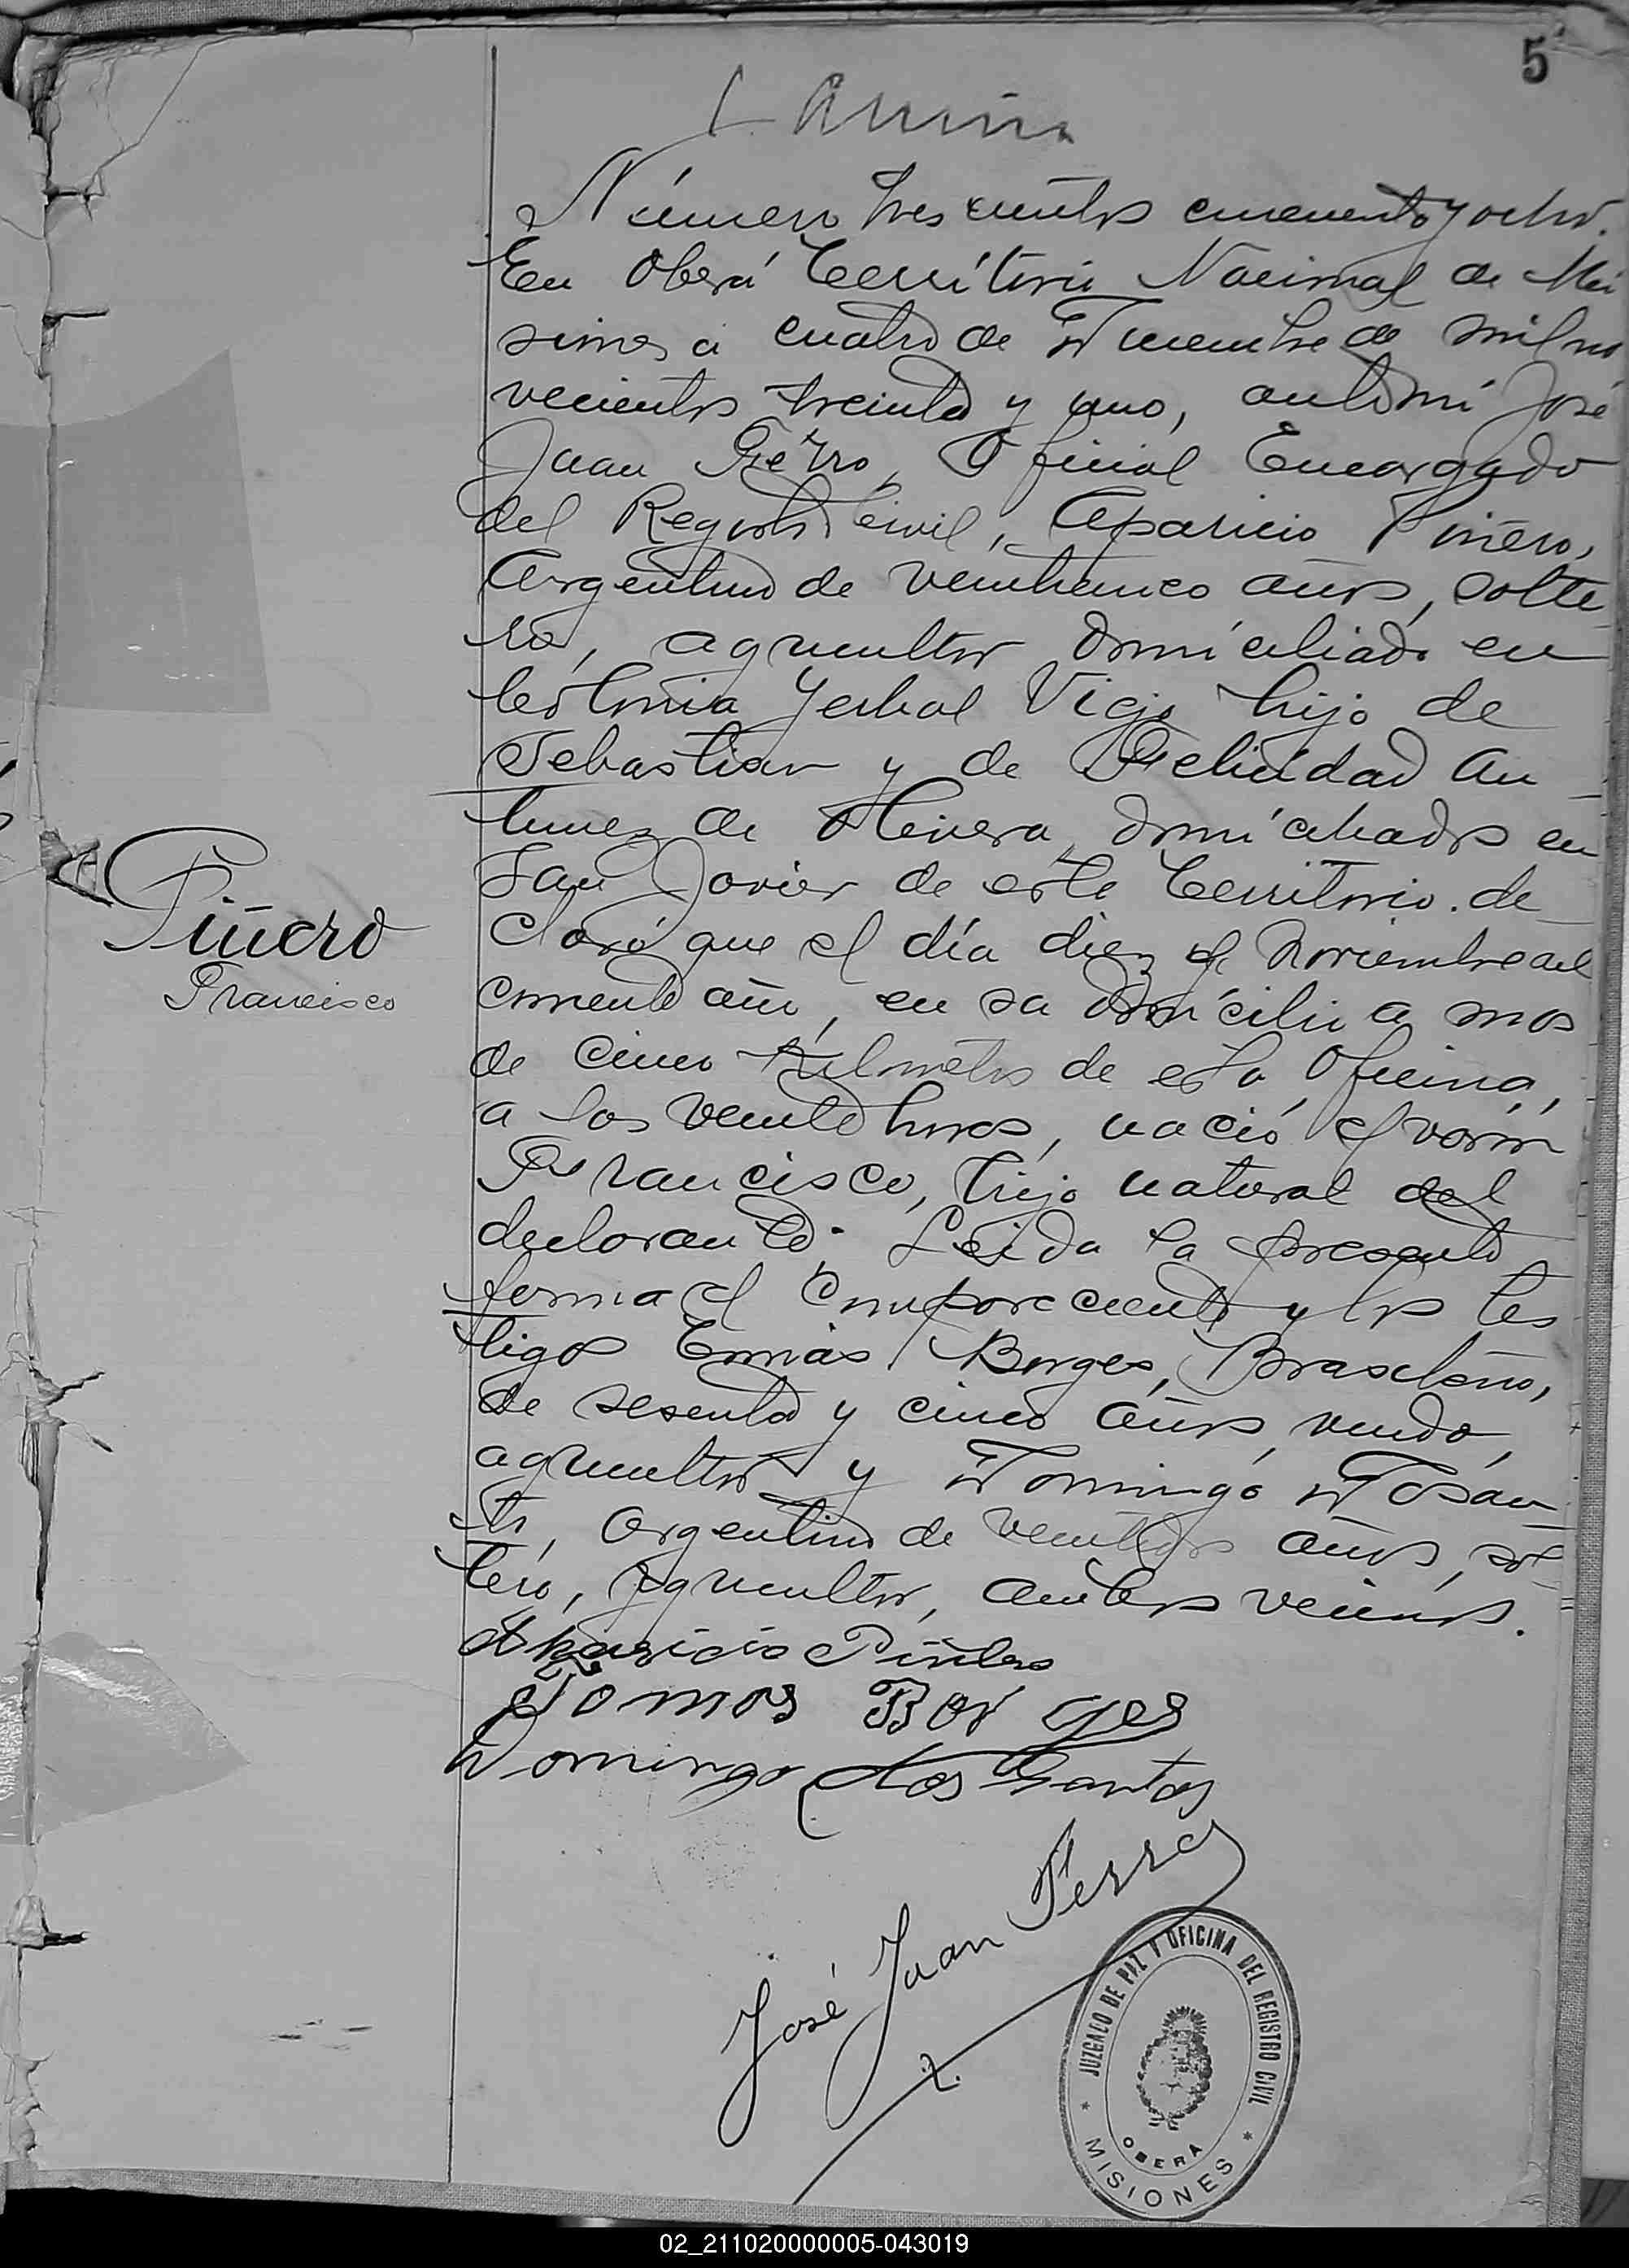 5
Número tres cientos cincuenta y ocho.
En Oberá Territorio Nacional de Mi
siones a cuatro de Diciembre de mil no
vecientos treinta y uno, ante mi José
Juan Ferro, Oficial Encargado
del Registro Civil, Aparicio Piñero,
Argentino de veinticinco años, solte
ro, agricultor domiciliado en
Colonia Yerbal Viejo hijo de
Sebastian y de Felicidad An
tunez de Olivera, domiciliados en
San Javier de este Territorio. de
Piñero
Francisco
claró que el día diez de Noviembre del
corriente año, en su domicilio a mas
de cinco kilometros de esta Oficina,
a las veinte horas, nació el varón
Francisco, hijo natural del
declarante. Leida la presente
firma el compareciente y los tes
tigos Tomás Borges, Brasileño,
de sesenta y cinco años, viudo,
agricultor y Domingo Dosan
to, argentino de veintidos años, sol
tero, agricultor, ambos vecinos.
Aparicio Piñero
Tomas Bor ges
Domingo dos Santos
José Juan Ferro
JUZGADO DE PAZ Y OFICINA DEL REGISTRO CIVIL
OBERA
* MISIONES *
02_211020000005-043019